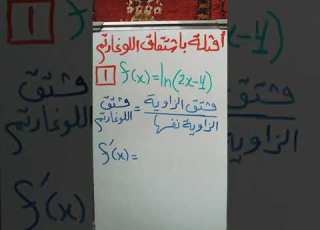 أمثلة باشتقاق اللوغارتم
1 f(x)=ln(2x-4)
مشتق اللوغارتم = مشتق الزاوية / الزاوية نفسها
f'(x)=